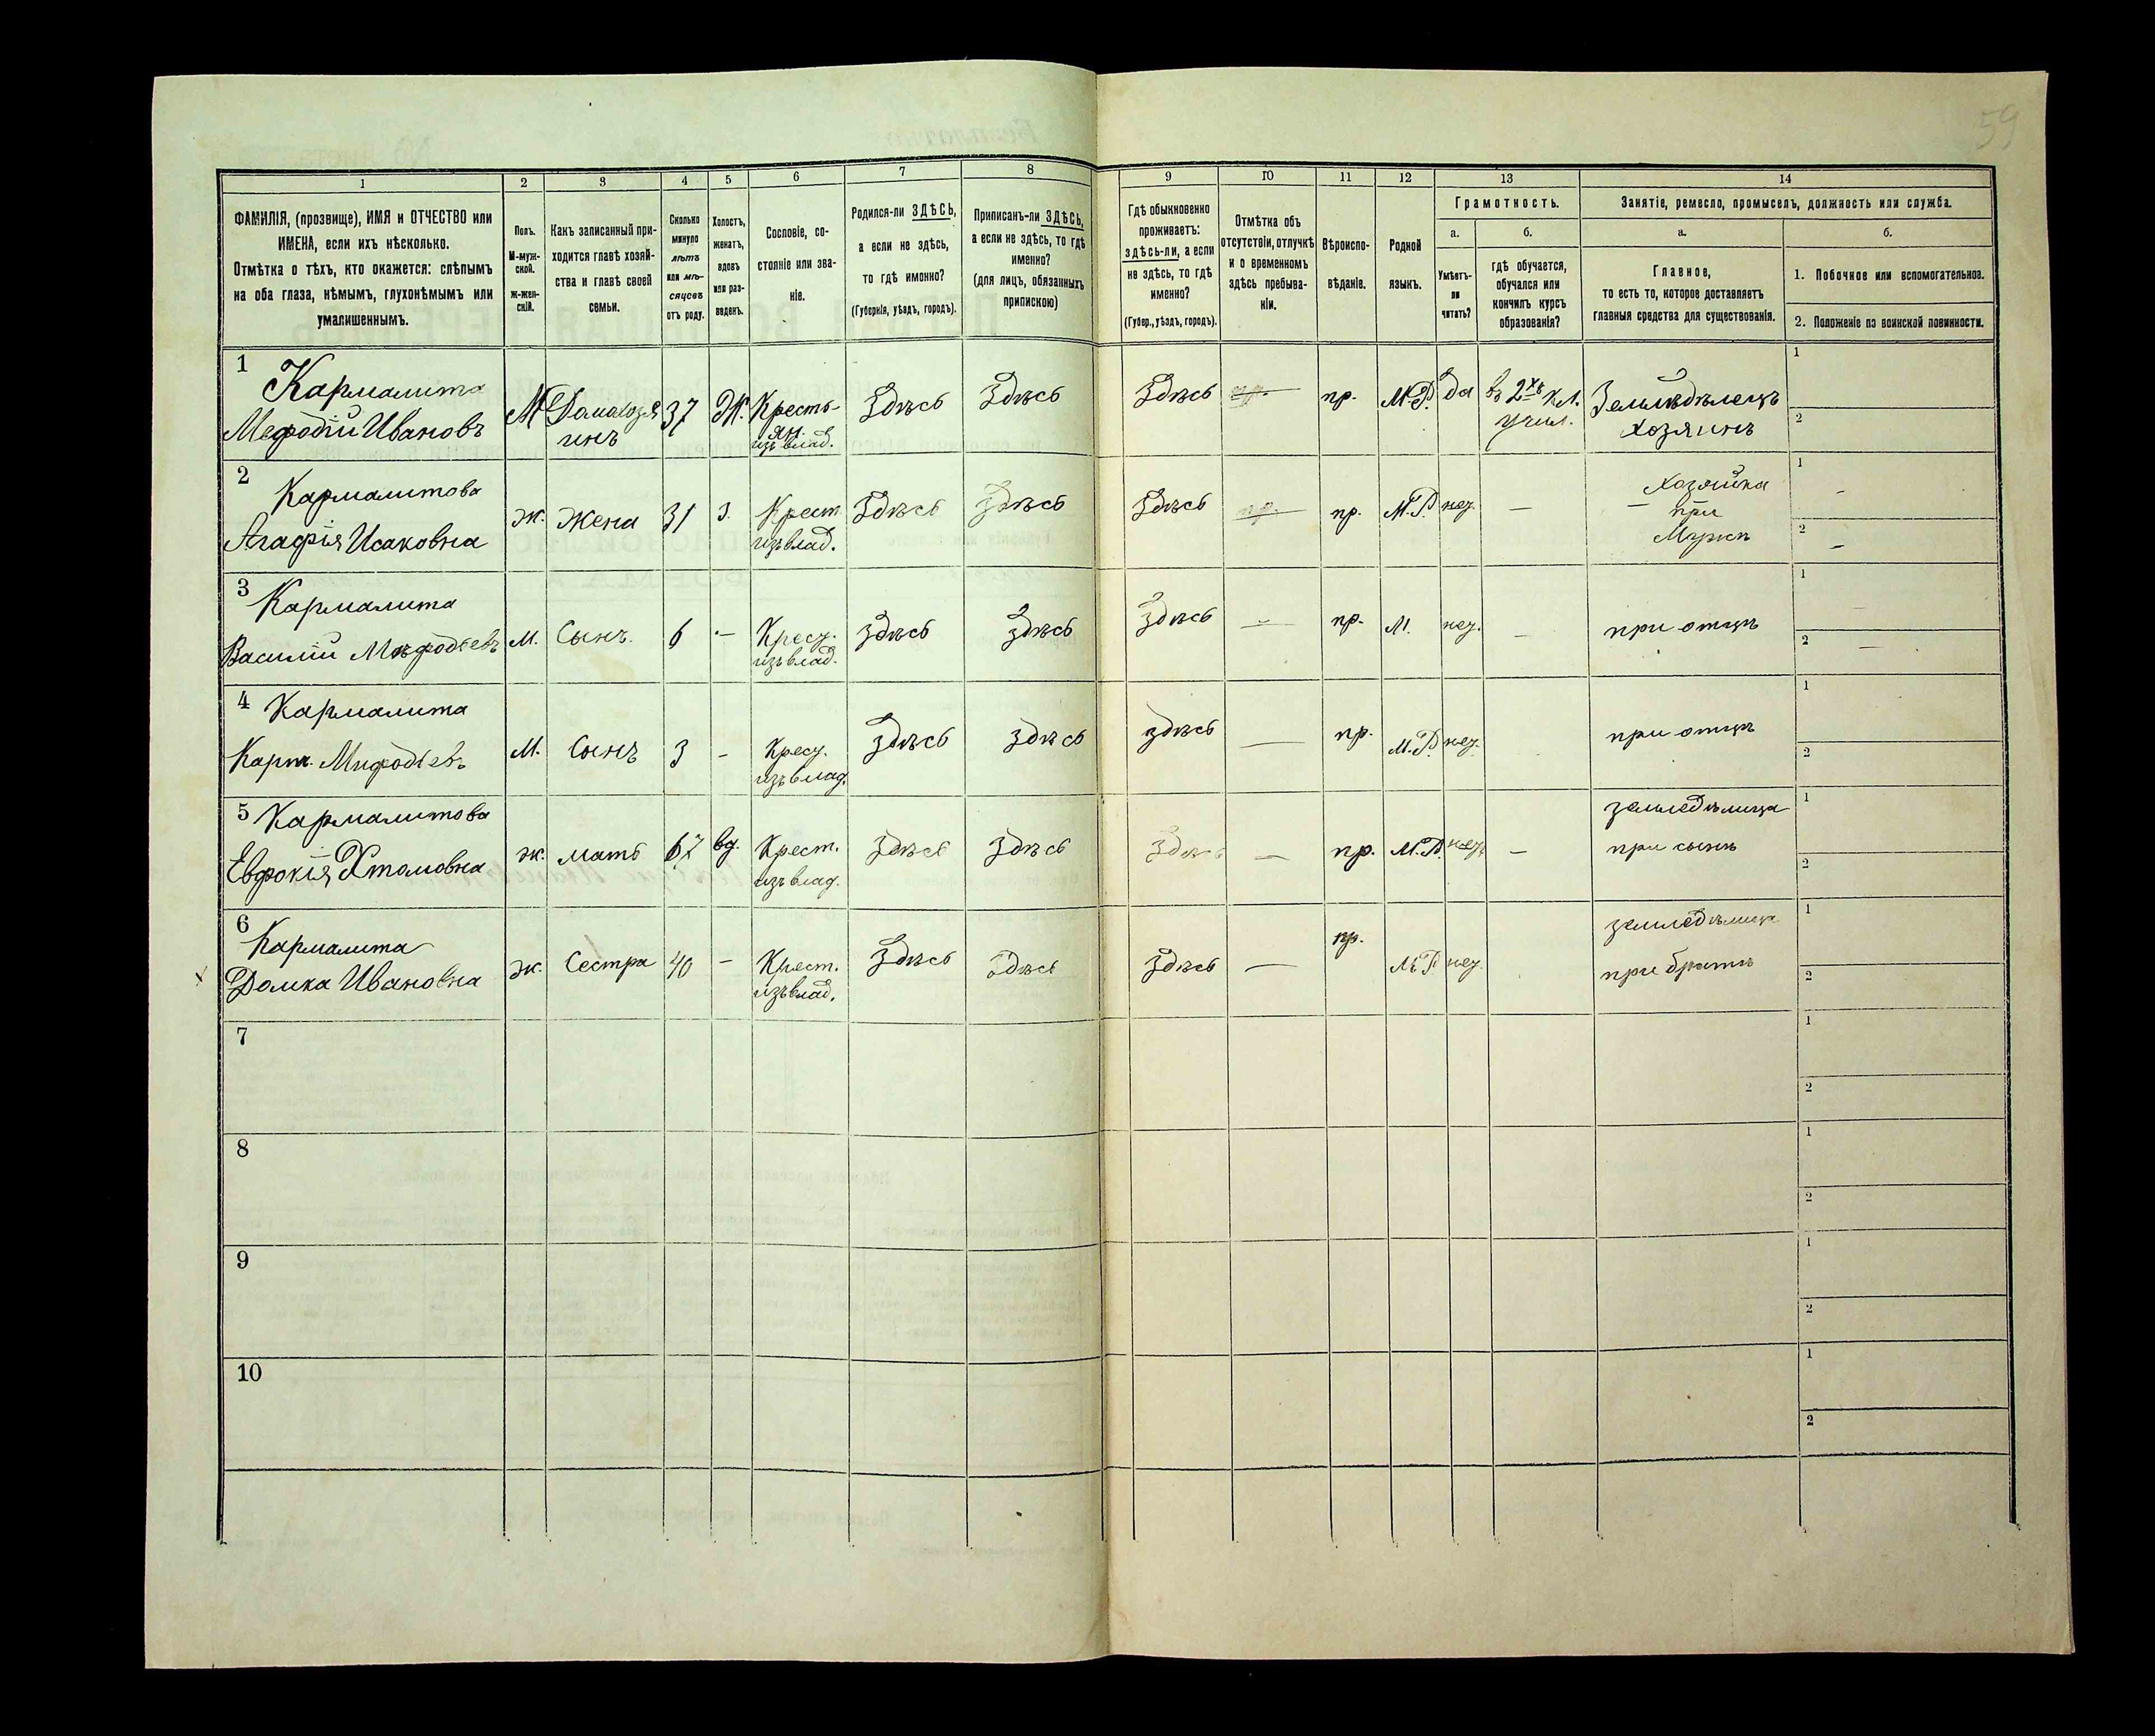 59
1 2 3 4 5 6 7 8 9 10 11 12 13 14
ФАМИЛІЯ, (прозвище), ИМЯ и ОТЧЕСТВО или
ИМЕНА, если ихъ нѣсколько.
Отмѣтка о тѣхъ, кто окажется: слѣпымъ
на оба глаза, нѣмымъ, глухонѣмымъ или
умалишеннымъ.
Полъ.
М-муж-
ской.
Ж-жен-
скій.
Какъ записанный при-
ходится главѣ хозяй-
ства и главѣ своей
семьи.
Сколько
минуло
лѣтъ
или мѣ-
сяцевъ
отъ роду.
Холостъ,
женатъ,
вдовъ
или раз-
веденъ.
Сословіе, со-
стояніе или зва-
ніе.
Родился-ли ЗДѢСЬ,
а если не здѣсь,
то гдѣ именно?
(Губернія, уѣздъ, городъ).
Приписанъ-ли ЗДѢСЬ,
а если не здѣсь, то гдѣ
именно?
(для лицъ, обязанныхъ
припискою)
Гдѣ обыкновенно
проживаетъ:
здѣсь-ли, а если
не здѣсь, то гдѣ
именно?
(Губер., уѣздъ, городъ).
Отмѣтка объ
отсутствіи, отлучкѣ
и о временномъ
здѣсь пребыва-
ніи.
Вѣроиспо-
вѣданіе.
Родной
языкъ.
Грамотность.
а.
Умѣетъ-
ли
читать?
б.
гдѣ обучается,
обучался или
кончилъ курсъ
образованія?
Занятіе, ремесло, промыселъ, должность или служба.
а.
Главное,
то есть то, которое доставляетъ
главныя средства для существованія.
б.
1. Побочное или вспомогательное.
2. Положеніе по воинской повинности.
1
Кармалита
Мефодій Ивановъ
М Домахозя
инъ
37 Ж. Кресть-
ян.
изъ влад.
Здѣсь Здѣсь Здѣсь пр. пр. М.Р. да въ 2хъ кл.
учил.
Земледѣлецъ
хозяинъ
1
2
2
Кармалитова
Агафія Исаковна
ж. Жена 31 З. Крест.
изъ влад.
Здѣсь Здѣсь Здѣсь пр. пр. М.Р. нез. —
Хозяйка
— при
Мужѣ
1 –
2 –
3
Кармалита
Василій Мѣфодіевъ
м. Сынъ. 6 — Крест.
изъ влад.
здѣсь здѣсь здѣсь — пр. М. нез. —
при отцѣ
1 –
2 –
4
Кармалита
Карп. Мифодіевъ
М. Сынъ 3 – Крест.
изъ влад.
здѣсь здѣсь здѣсь — пр. М.Р. нез.
при отцѣ
1
2
5
Кармалитова
ж. мать 67 вд. Крест.
изъ влад.
здѣсь здѣсь здѣсь — пр. М.Р. нез. —
земледѣлица
при сынѣ
1
2
6
Кармалита
Домка Ивановна
ж. Сестра 40 – Крест.
изъ влад.
Здѣсь здѣсь здѣсь — пр. М.Р. нез.
земледѣлица
при братѣ
1
2
7
1
2
8
1
2
9
1
2
10
1
2